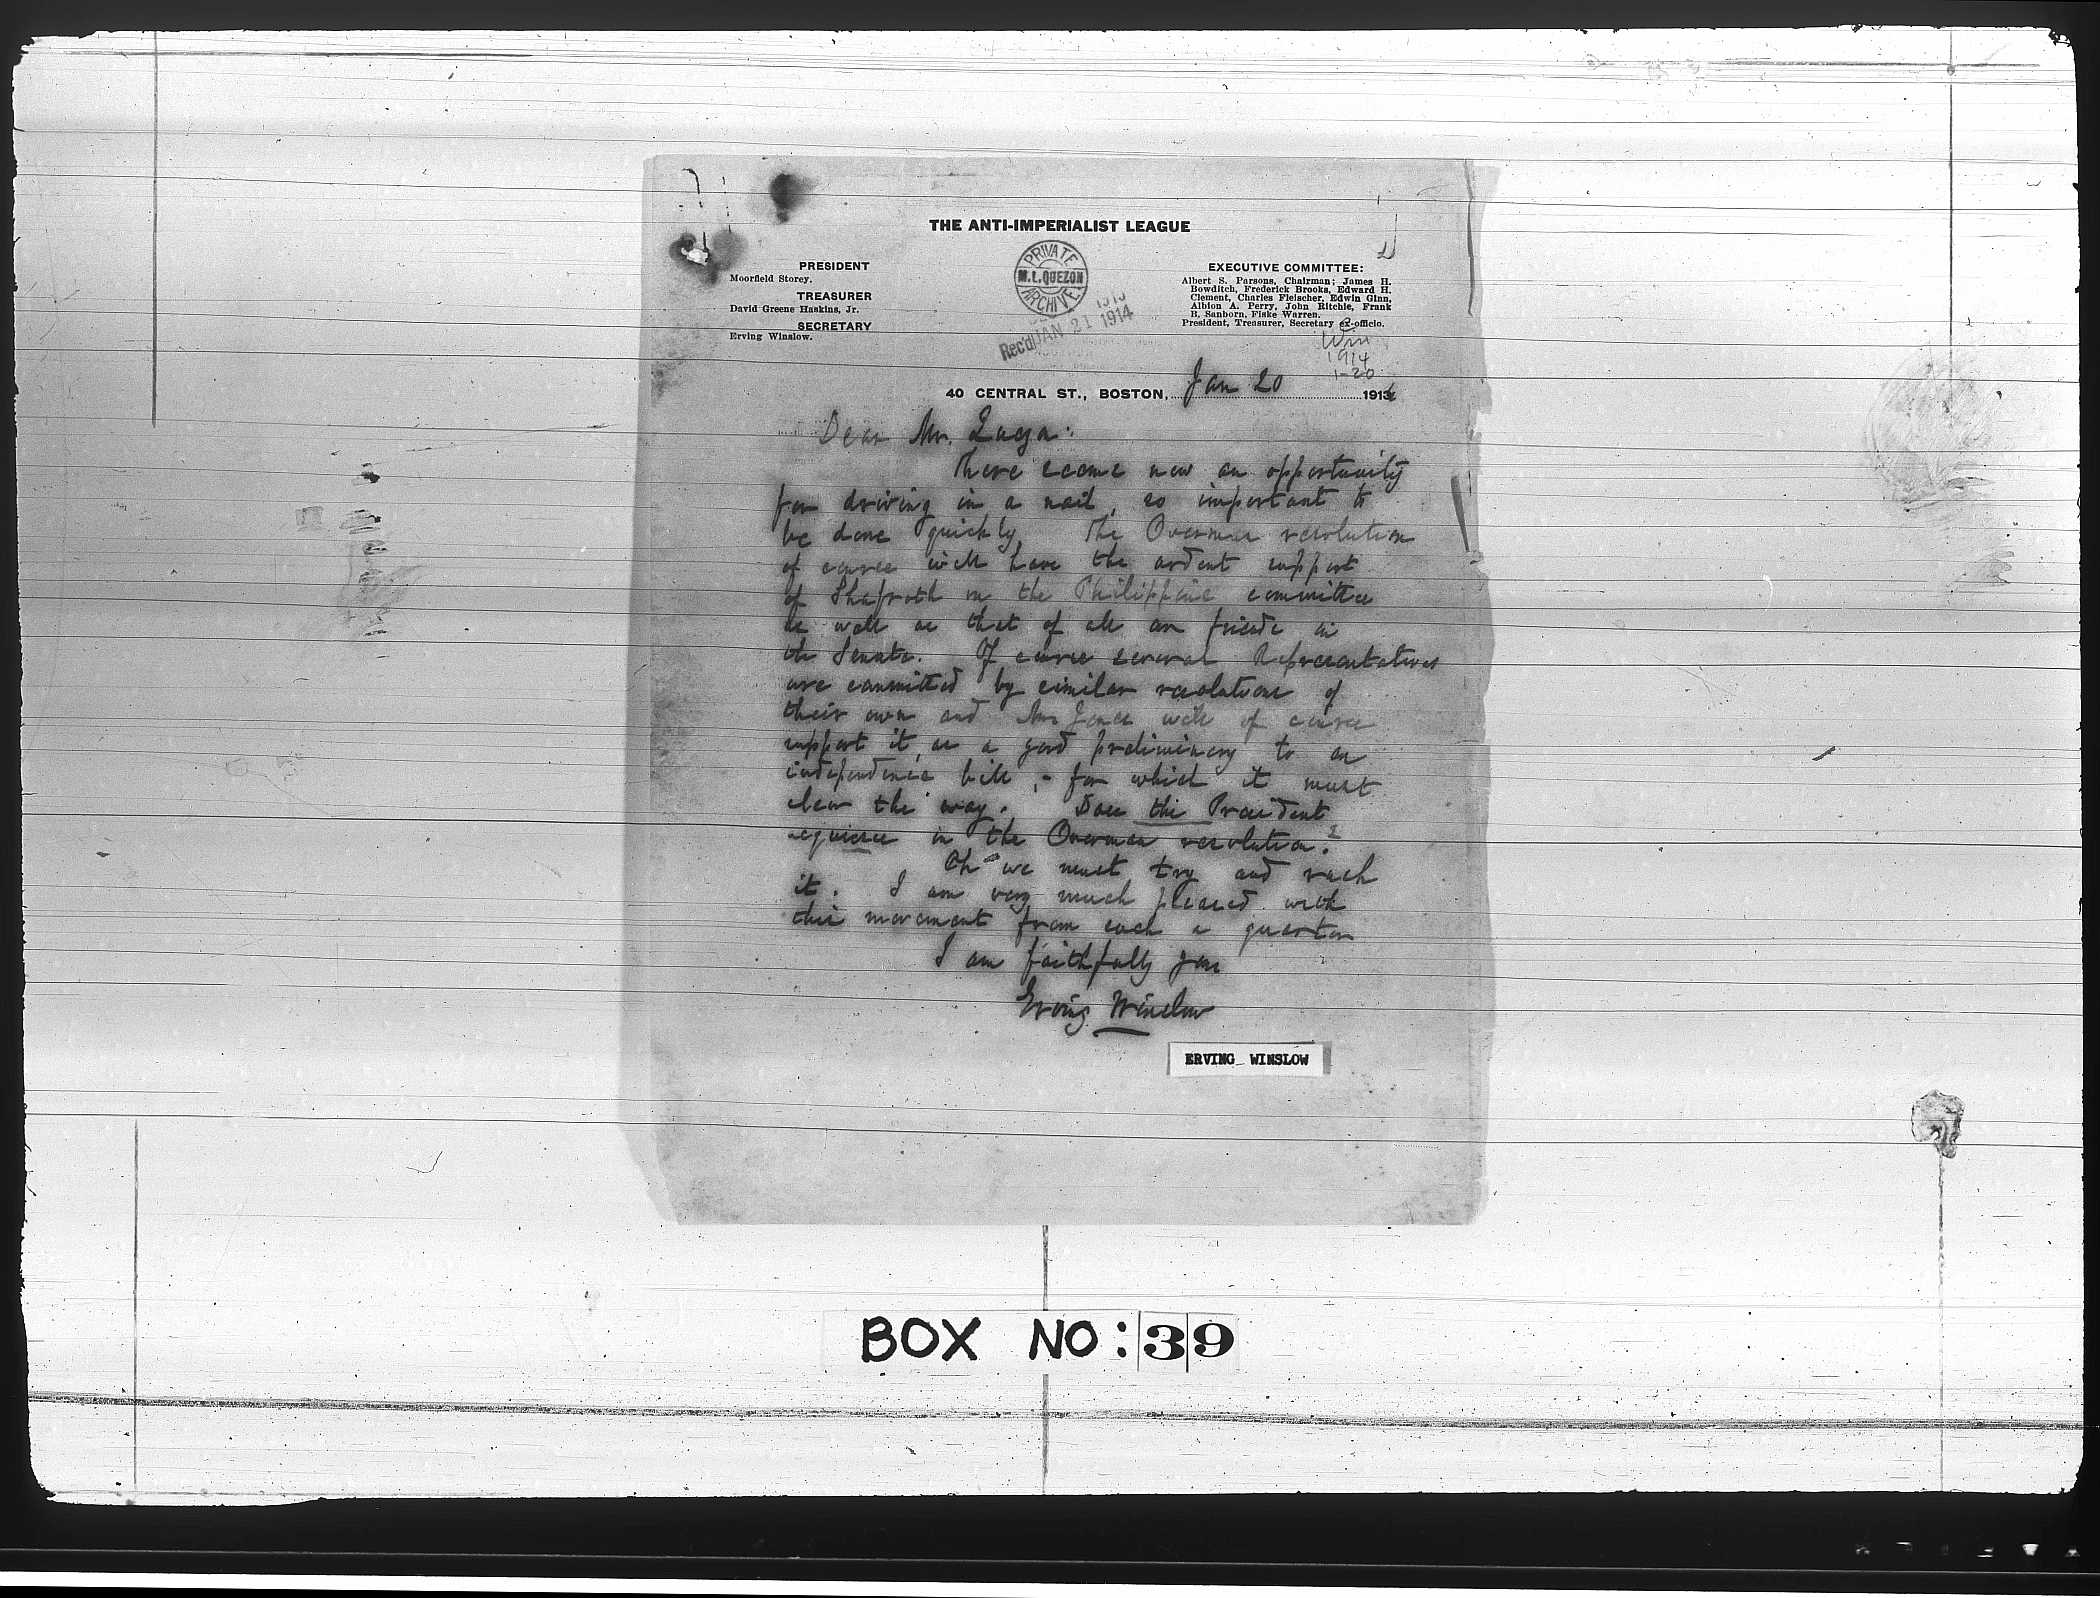 THE ANTI-IMPERIALIST LEAGUE
PRIVATE
M.L.QUEZON
ARCHIVE
PRESIDENT
Moorfield Storey.
TREASURER
David Greene Haskins, Jr.
SECRETARY
Erving Winslow.
EXECUTIVE COMMITTEE:
Albert S. Parsons, Chairman; James H.
Bowditch, Frederick Brooks, Edward H.
Clement, Charles Fleischer, Edwin Ginn,
Albion A. Perry, John Ritchie, Frank
B. Sanborn, Fiske Warren.
President, Treasurer, Secretary ex-officio.
Rec'd JAN 21 1914
Win
1914
1-20
40 CENTRAL ST., BOSTON, Jan 20 1914
Dear Mr.
There seems now an opportunity
for driving in a nail, so important to
be done quickly. The Overman resolution
of course will have the ardent support
of Shafroth on the Philippine committee
as well as that of all our friends in
the Senate. Of course several Representatives
are committed by similar resolutions of
their own and Mr Jones will of course
support it as a good preliminary to an
independence bill, - for which it must
clear the way. Does the President
acquiesce in the Overman resolution?
Oh we must try and
it. I am very much pleased with
this movement from such a quarter
I am faithfully yours
Erving Winslow
ERVING WINSLOW
BOX NO: 39